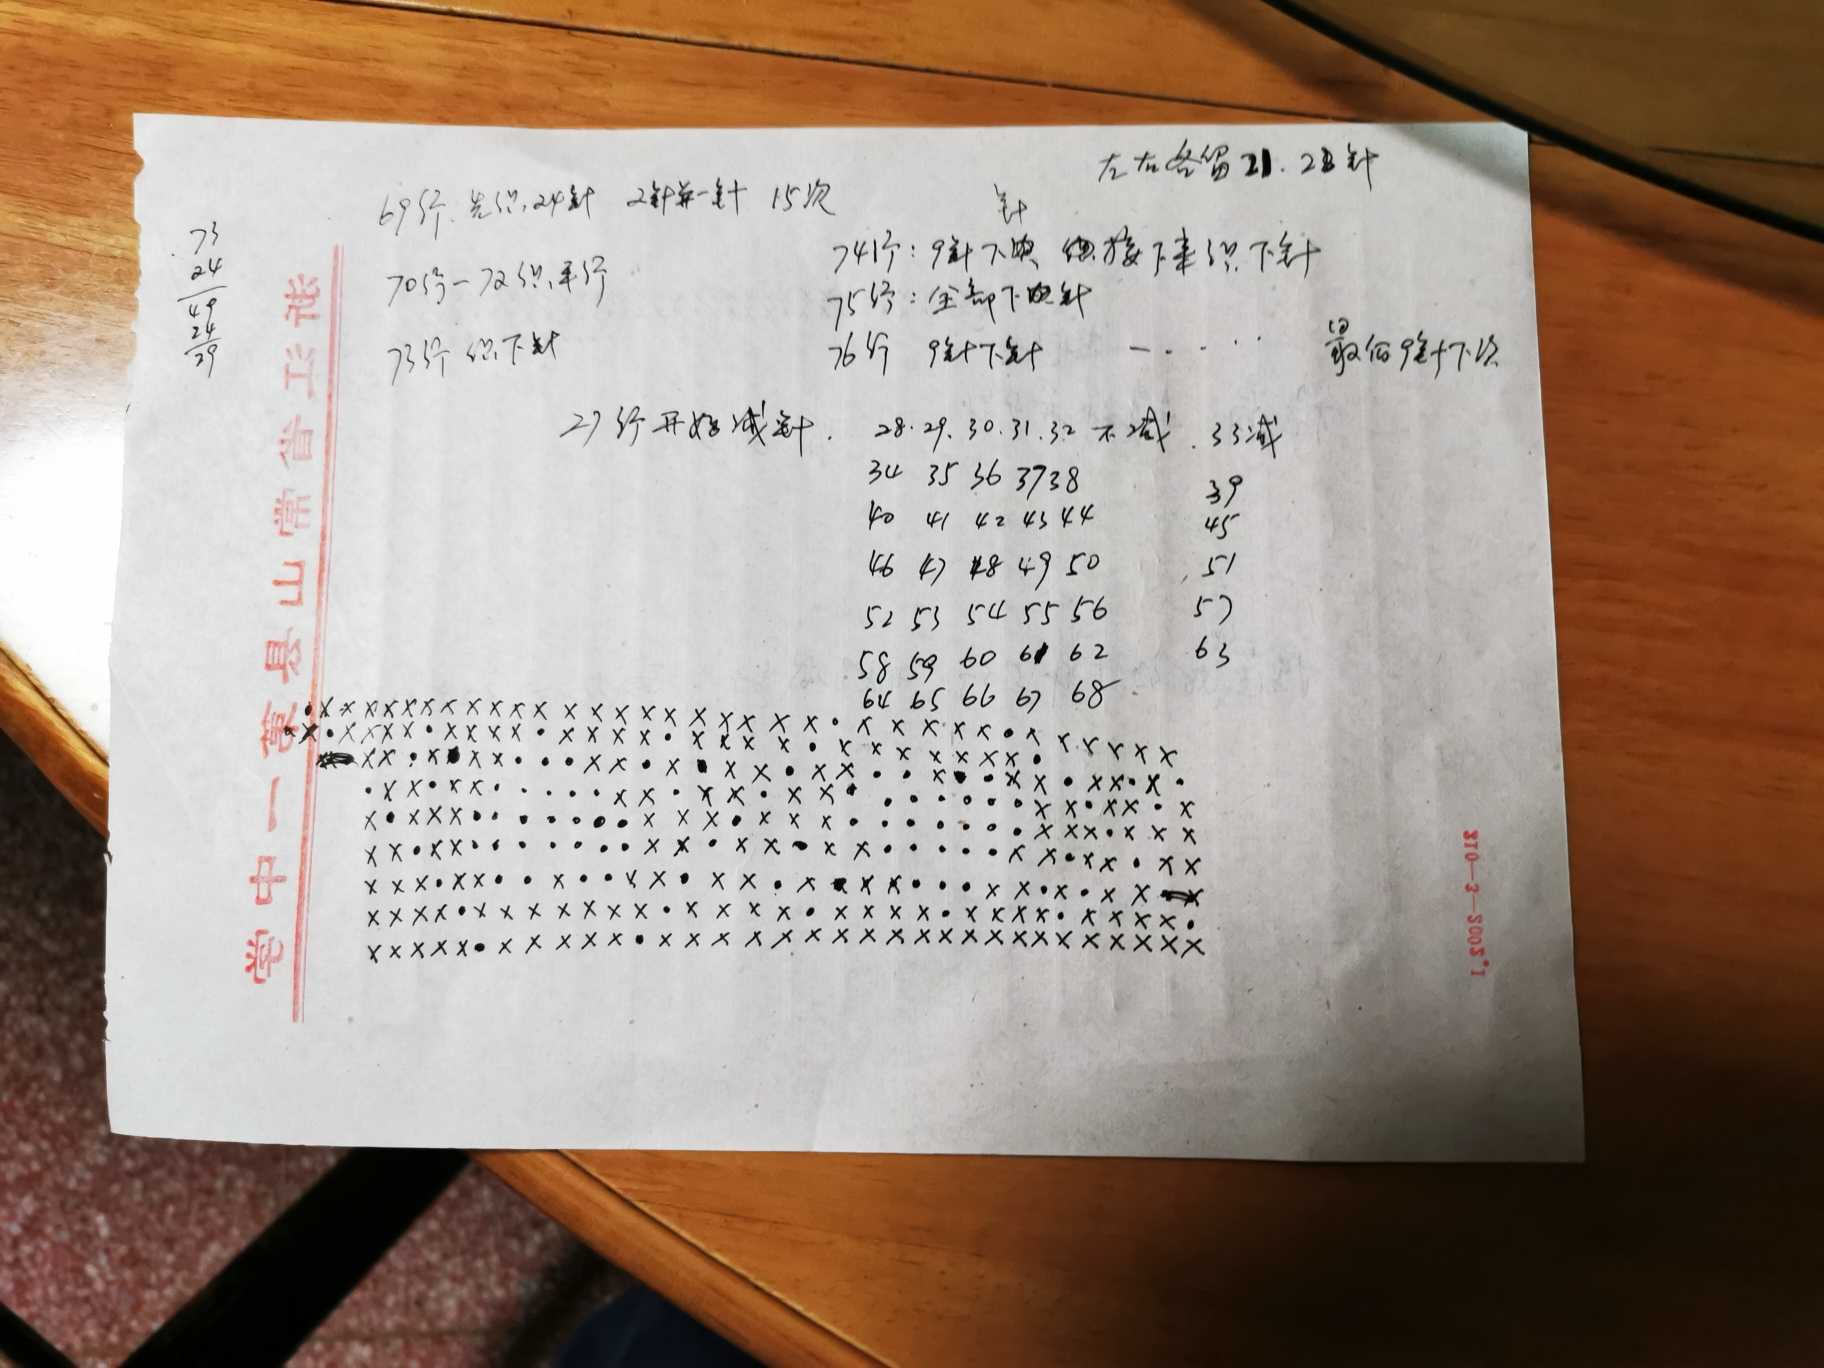 左右各留21.23针
69行.先织.24针 2针并一针 15次
针
73
24
49
24
29
70行一72织.平行
73行织下针
741行:9针下 接下来织下针
75行:全部下针
76行 9针下针 一.....
最后9针下次
27行开始减针. 28.29.30.31.32不减.33减
34 35 36 37 38 39
40 41 42 43 44 45
46 47 48 49 50 51
52 53 54 55 56 57
58 59 60 61 62 63
64 65 66 67 68
浙江省常山县第一中学
310-3-2002.1